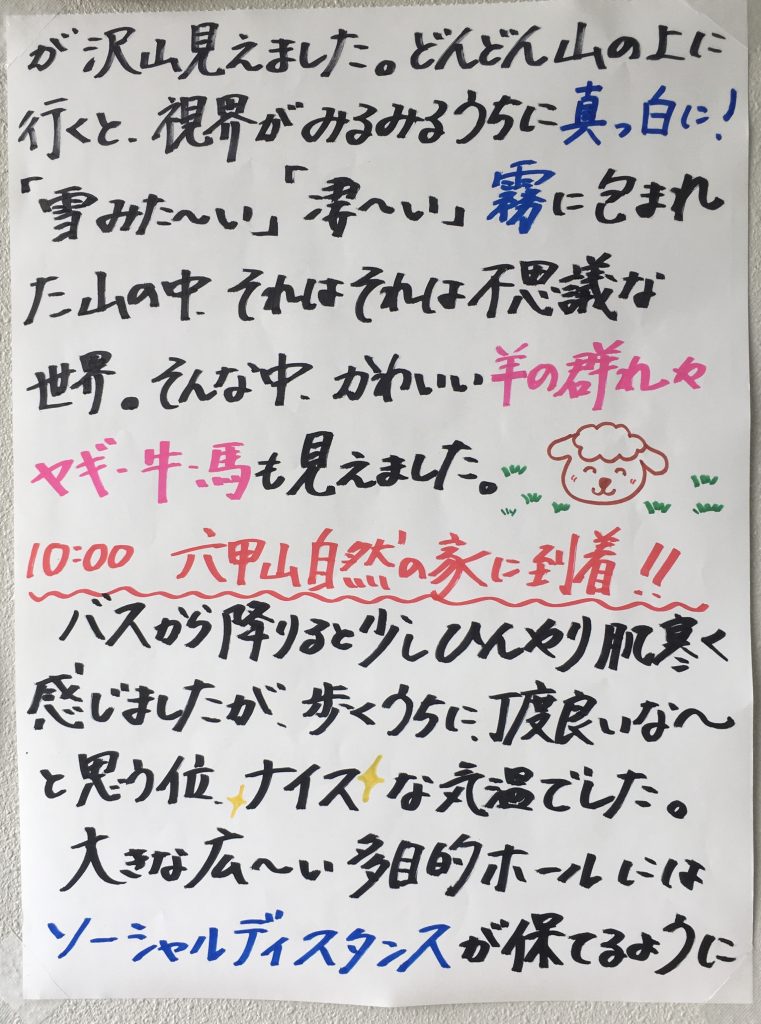 が沢山見えました。どんどん山の上に
行くと、視界がみるみるうちに真っ白に!
「雪みた～い」「凄～い」霧に包まれ
た山の中、それはそれは不思議な
世界。そんな中、かわいい羊の群れ々
ヤギ・牛・馬も見えました。
10:00 六甲山自然の家に到着!!
バスから降りると少しひんやり肌寒く
感じましたが、歩くうちに、丁度良いな～
と思う位、ナイスな気温でした。
大きな広～い多目的ホールには
ソーシャルディスタンスが保てるように